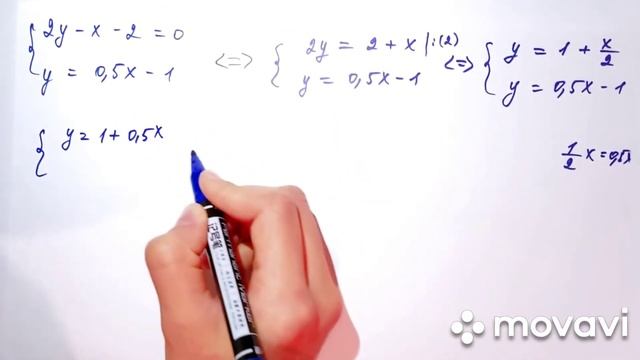 2y - x - 2 = 0
y = 0,5x - 1
<=>
2y = 2 + x |:(2)
y = 0,5x - 1
<=>
y = 1 + x/2
y = 0,5x - 1
y = 1 + 0,5x
1/2 x = 0,5x
movavi